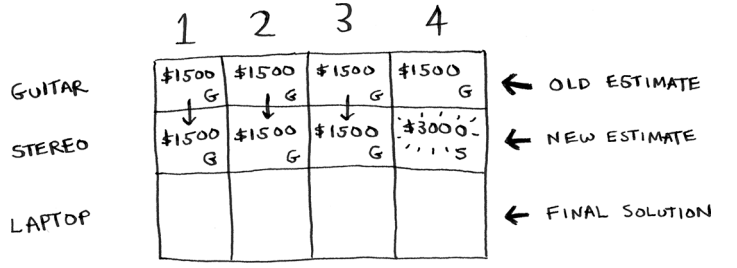 1 2 3 4
GUITAR $1500 G $1500 G $1500 G $1500 G ← OLD ESTIMATE
STEREO $1500 G $1500 G $1500 G $3000 S ← NEW ESTIMATE
LAPTOP ← FINAL SOLUTION